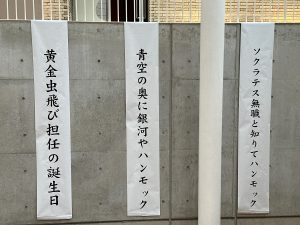 ソクラテス無職と知りてハンモック
青空の奥に銀河やハンモック
黄金虫飛び担任の誕生日